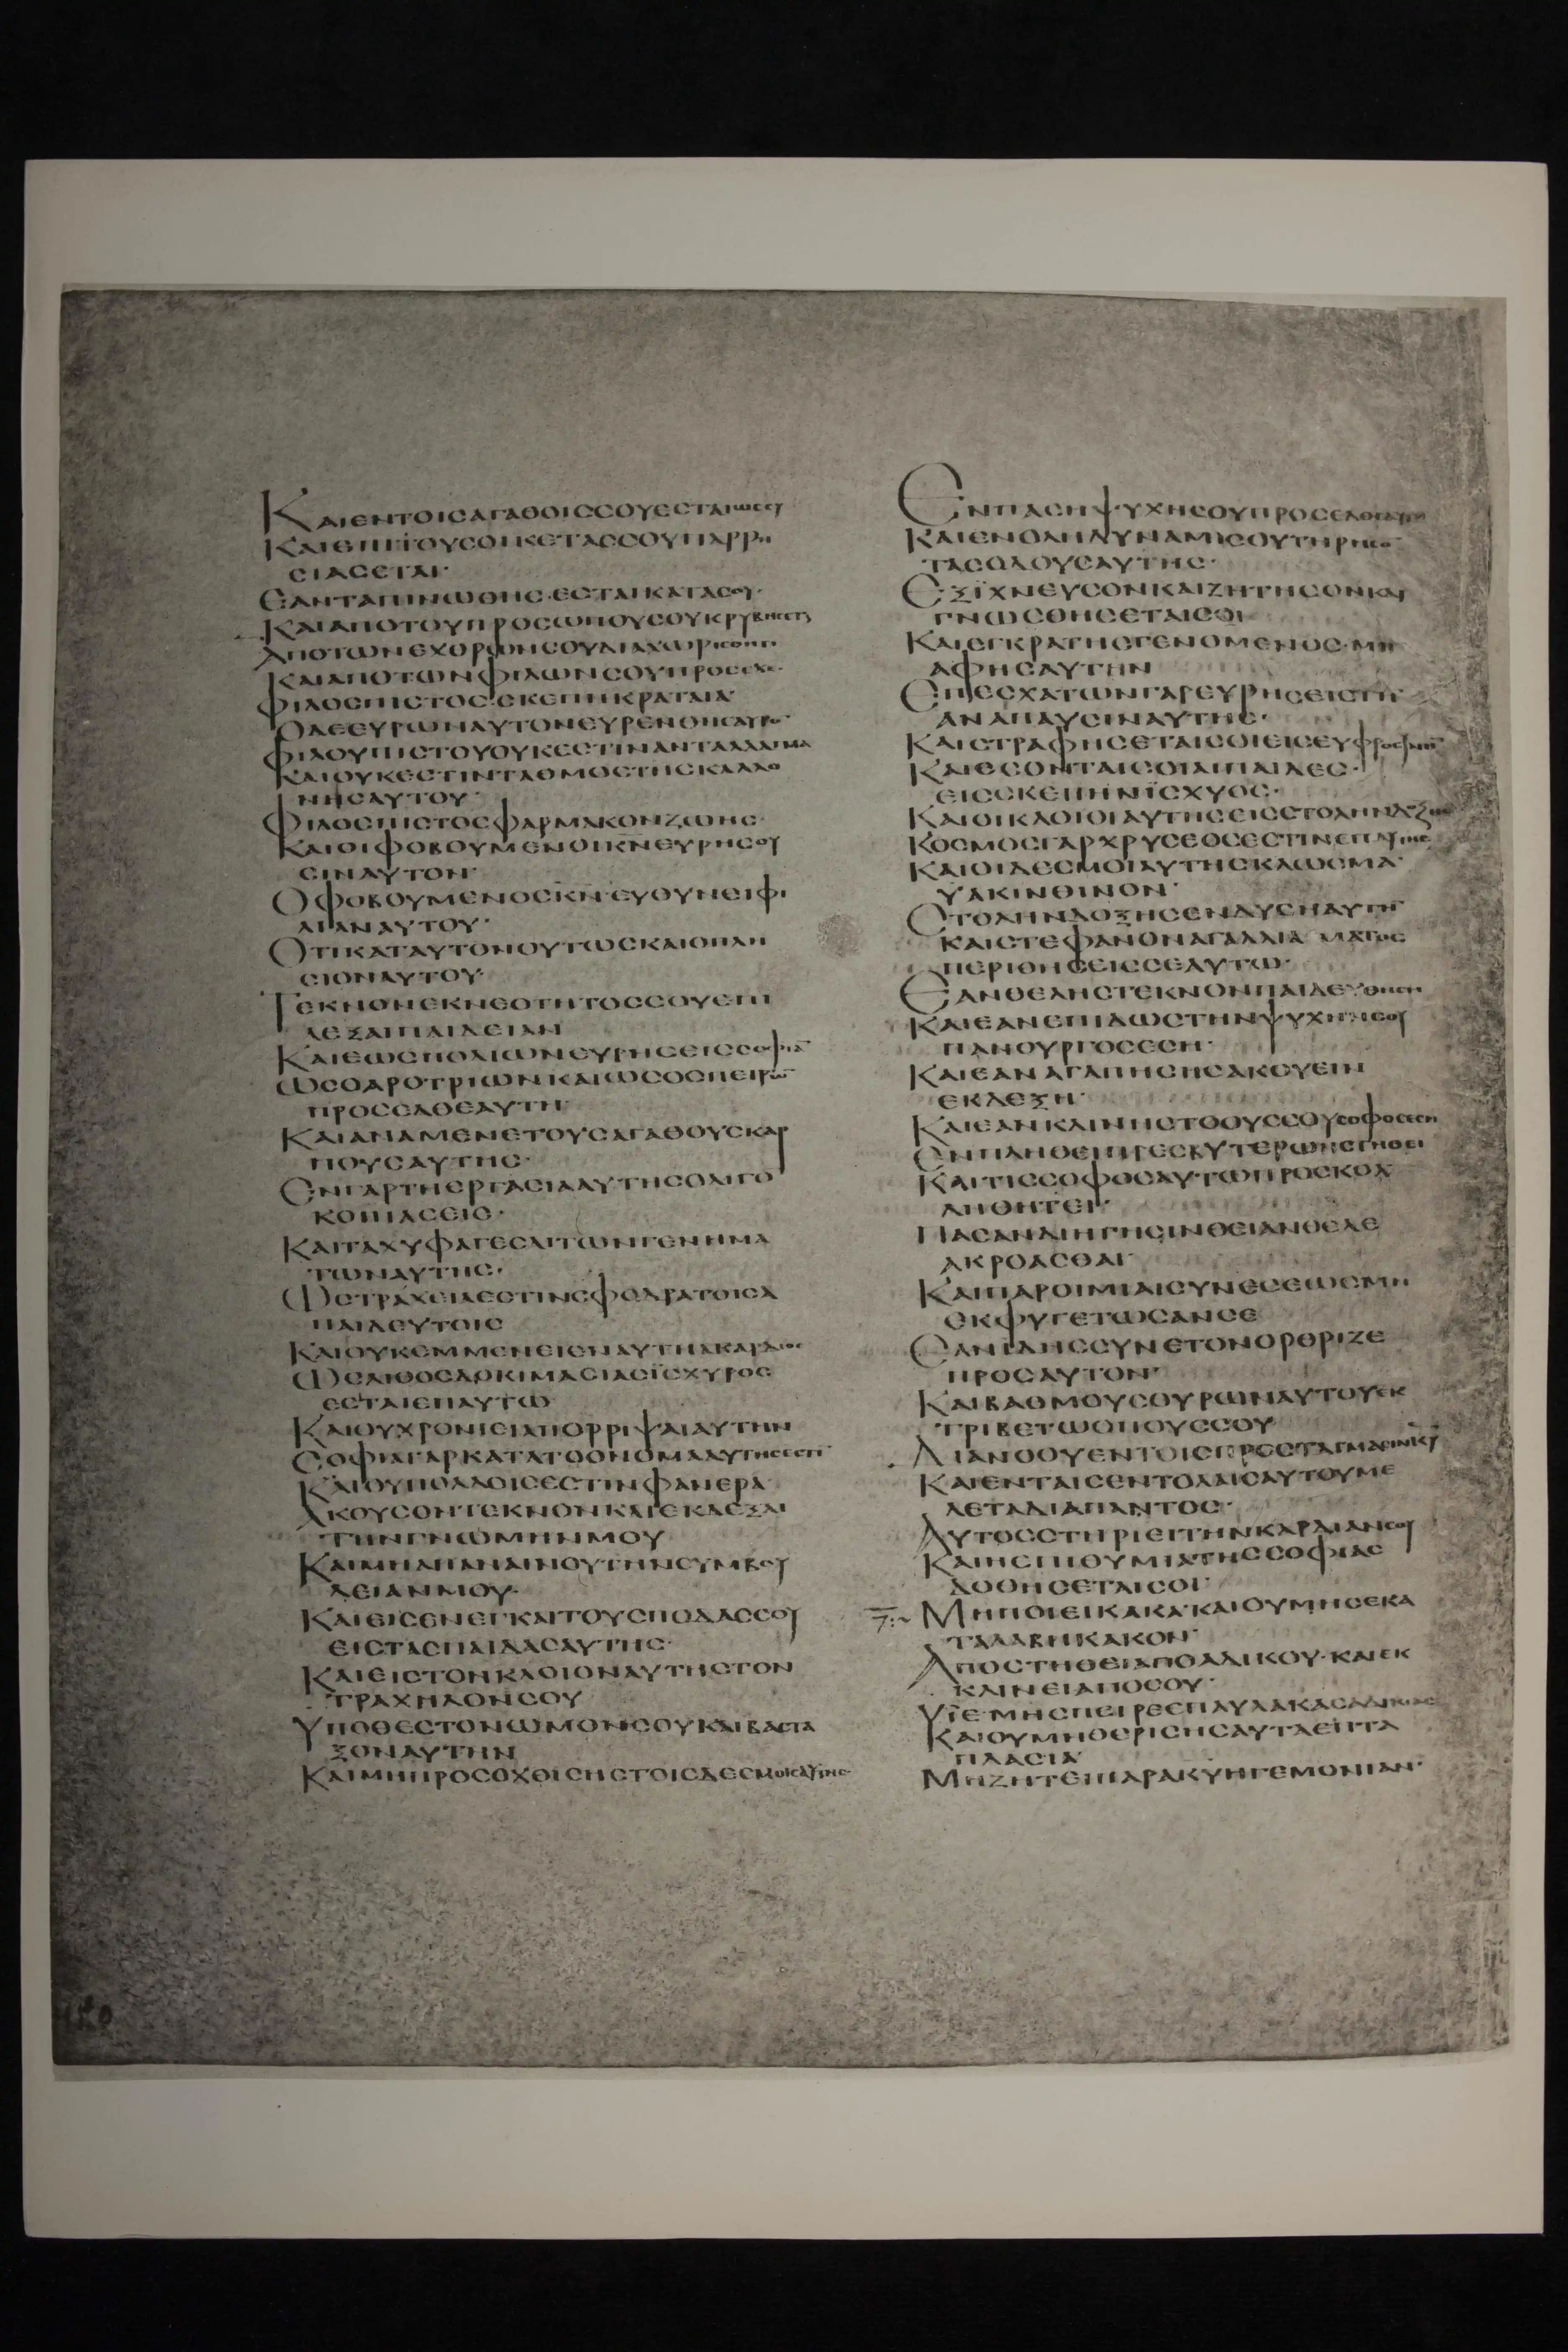 ΚΑΙΕΝΤΟΙϹΑΓΑΘΟΙϹϹΟΥΕϹΤΑΙΩϹϹΥ
ΚΑΙΕΠΙΤΟΥϹΟΙΚΕΤΑϹϹΟΥΠΑΡΡΗ
ϹΙΑϹΕΤΑΙ·
ΕΑΝΤΑΠΙΝΩΘΗϹ·ΕϹΤΑΙΚΑΤΑϹΟΥ·
ΚΑΙΑΠΟΤΟΥΠΡΟϹΩΠΟΥϹΟΥΚΡΥΒΗϹΕΤΑΙ
ΑΠΟΤΩΝΕΧΘΡΩΝϹΟΥΔΙΑΧΩΡΙϹΘΗΤΙ
ΚΑΙΑΠΟΤΩΝΦΙΛΩΝϹΟΥΠΡΟϹΕΧΕ·
ΦΙΛΟϹΠΙϹΤΟϹϹΚΕΠΗΚΡΑΤΑΙΑ·
ΟΔΕΕΥΡΩΝΑΥΤΟΝΕΥΡΕΝΘΗϹΑΥΡΟΝ
ΦΙΛΟΥΠΙϹΤΟΥΟΥΚΕϹΤΙΝΑΝΤΑΛΛΑΓΜΑ
ΚΑΙΟΥΚΕϹΤΙΝϹΤΑΘΜΟϹΤΗϹΚΑΛΛΟ
ΝΗϹΑΥΤΟΥ·
ΦΙΛΟϹΠΙϹΤΟϹΦΑΡΜΑΚΟΝΖΩΗϹ·
ΚΑΙΟΙΦΟΒΟΥΜΕΝΟΙΚΝΕΥΡΗϹΟΥ
ϹΙΝΑΥΤΟΝ·
ΟΦΟΒΟΥΜΕΝΟϹΚΝ·ΕΥΘΥΝΕΙΦΙ
ΛΙΑΝΑΥΤΟΥ·
ΟΤΙΚΑΤΑΥΤΟΝΟΥΤΩϹΚΑΙΟΠΛΗ
ϹΙΟΝΑΥΤΟΥ·
ΤΕΚΝΟΝΕΚΝΕΟΤΗΤΟϹϹΟΥΕΠΙ
ΛΕΞΑΙΠΑΙΔΕΙΑΝ
ΚΑΙΕΩϹΠΟΛΙΩΝΕΥΡΗϹΕΙϹϹΟΦΙΑΝ
ΩϹΟΑΡΟΤΡΙΩΝΚΑΙΩϹΟϹΠΕΙΡΩΝ
ΠΡΟϹΕΛΘΕΑΥΤΗ·
ΚΑΙΑΝΑΜΕΝΕΤΟΥϹΑΓΑΘΟΥϹΚΑΡ
ΠΟΥϹΑΥΤΗϹ·
ΕΝΓΑΡΤΗΕΡΓΑϹΙΑΑΥΤΗϹΟΛΙΓΟ
ΚΟΠΙΑϹΕΙϹ·
ΚΑΙΤΑΧΥΦΑΓΕϹΑΙΤΩΝΓΕΝΗΜΑ
ΤΩΝΑΥΤΗϹ·
ΩϹΤΡΑΧΕΙΑΕϹΤΙΝϹΦΟΔΡΑΤΟΙϹΑ
ΠΑΙΔΕΥΤΟΙϹ
ΚΑΙΟΥΚΕΜΜΕΝΕΙΕΝΑΥΤΗΑΚΑΡΔΙΟϹ
ΩϹΛΙΘΟϹΔΟΚΙΜΑϹΙΑϹΪϹΧΥΡΟϹ
ΕϹΤΑΙΕΠΑΥΤΩ
ΚΑΙΟΥΧΡΟΝΙΕΙΑΠΟΡΡΙΨΑΙΑΥΤΗΝ
ϹΟΦΙΑΓΑΡΚΑΤΑΤΟΟΝΟΜΑΑΥΤΗϹΕϹΤΙ
ΚΑΙΟΥΠΟΛΛΟΙϹΕϹΤΙΝΦΑΝΕΡΑ·
ΑΚΟΥϹΟΝΤΕΚΝΟΝΚΑΙΕΚΔΕΞΑΙ
ΤΗΝΓΝΩΜΗΝΜΟΥ
ΚΑΙΜΗΑΠΑΝΑΙΝΟΥΤΗΝϹΥΜΒΟΥ
ΛΕΙΑΝΜΟΥ·
ΚΑΙΕΙϹΕΝΕΓΚΑΙΤΟΥϹΠΟΔΑϹϹΟΥ
ΕΙϹΤΑϹΠΑΙΔΑϹΑΥΤΗϹ·
ΚΑΙΕΙϹΤΟΝΚΛΟΙΟΝΑΥΤΗϹΤΟΝ
ΤΡΑΧΗΛΟΝϹΟΥ
ΥΠΟΘΕϹΤΟΝΩΜΟΝϹΟΥΚΑΙΒΑϹΤΑ
ΞΟΝΑΥΤΗΝ
ΚΑΙΜΗΠΡΟϹΟΧΘΙϹΗϹΤΟΙϹΔΕϹΜΟΙϹΑΥΤΗϹ·
ΕΝΠΑϹΗΨΥΧΗϹΟΥΠΡΟϹΕΛΘΕΑΥΤΗ
ΚΑΙΕΝΟΛΗΔΥΝΑΜΙϹΟΥΤΗΡΗϹΟΝ
ΤΑϹΟΔΟΥϹΑΥΤΗϹ·
ΕΞΪΧΝΕΥϹΟΝΚΑΙΖΗΤΗϹΟΝΚΑΙ
ΓΝΩϹΘΗϹΕΤΑΙϹΟΙ
ΚΑΙΕΓΚΡΑΤΗϹΓΕΝΟΜΕΝΟϹ·ΜΗ
ΑΦΗϹΑΥΤΗΝ
ΕΠΕϹΧΑΤΩΝΓΑΡΕΥΡΗϹΕΙϹΤΗ
ΑΝΑΠΑΥϹΙΝΑΥΤΗϹ·
ΚΑΙϹΤΡΑΦΗϹΕΤΑΙϹΟΙΕΙϹΕΥΦΡΟϹΥΝΗ
ΚΑΙΕϹΟΝΤΑΙϹΟΙΑΙΠΑΙΔΕϹ·
ΕΙϹϹΚΕΠΗΝΪϹΧΥΟϹ·
ΚΑΙΟΙΚΛΟΙΟΙΑΥΤΗϹΕΙϹϹΤΟΛΗΝΔΟΞΗϹ
ΚΟϹΜΟϹΓΑΡΧΡΥϹΕΟϹΕϹΤΙΝΕΠΑΥΤΗϹ
ΚΑΙΟΙΔΕϹΜΟΙΑΥΤΗϹΚΛΩϹΜΑ·
ΥΑΚΙΝΘΙΝΟΝ·
ϹΤΟΛΗΝΔΟΞΗϹΕΝΔΥϹΗΑΥΤΗ
ΚΑΙϹΤΕΦΑΝΟΝΑΓΑΛΛΙΑΜΑΤΟϹ
ΠΕΡΙΘΗϹΕΙϹϹΕΑΥΤΩ·
ΕΑΝΘΕΛΗϹΤΕΚΝΟΝΠΑΙΔΕΥΘΗϹΗ
ΚΑΙΕΑΝΕΠΙΔΩϹΤΗΝΨΥΧΗΝϹΟΥ
ΠΑΝΟΥΡΓΟϹΕϹΗ·
ΚΑΙΕΑΝΑΓΑΠΗϹΗϹΑΚΟΥΕΙΝ
ΕΚΔΕΞΗ·
ΚΑΙΕΑΝΚΛΙΝΗϹΤΟΟΥϹϹΟΥϹΟΦΟϹΕϹΗ
ΕΝΠΛΗΘΕΙΠΡΕϹΒΥΤΕΡΩΝϹΤΗΘΕΙ
ΚΑΙΤΙϹϹΟΦΟϹΑΥΤΩΠΡΟϹΚΟΛ
ΛΗΘΗΤΕΙ·
ΠΑΣΑΝΔΙΗΓΗϹΙΝΘΕΙΑΝΘΕΛΕ
ΑΚΡΟΑϹΘΑΙ·
ΚΑΙΠΑΡΟΙΜΙΑΙϹΥΝΕϹΕΩϹΜΗ
ΕΚΦΥΓΕΤΩϹΑΝϹΕ
ΕΑΝΙΔΗϹϹΥΝΕΤΟΝΟΡΘΡΙΖΕ
ΠΡΟϹΑΥΤΟΝ·
ΚΑΙΒΑΘΜΟΥϹΟΥΡΩΝΑΥΤΟΥΕΚ
ΤΡΙΒΕΤΩΟΠΟΥϹϹΟΥ
ΔΙΑΝΟΟΥΕΝΤΟΙϹΠΡΟϹΤΑΓΜΑϹΙΝΚΥ
ΚΑΙΕΝΤΑΙϹΕΝΤΟΛΑΙϹΑΥΤΟΥΜΕ
ΛΕΤΑΔΙΑΠΑΝΤΟϹ·
ΑΥΤΟϹϹΤΗΡΙΕΙΤΗΝΚΑΡΔΙΑΝϹΟΥ
ΚΑΙΗΕΠΙΘΥΜΙΑΤΗϹϹΟΦΙΑϹ
ΔΟΘΗϹΕΤΑΙϹΟΙ·
ΜΗΠΟΙΕΙΚΑΚΑ·ΚΑΙΟΥΜΗϹΕΚΑ
ΤΑΛΑΒΗΚΑΚΟΝ·
ΑΠΟϹΤΗΘΕΙΑΠΟΑΔΙΚΟΥ·ΚΑΙΕΚ
ΚΛΙΝΕΙΑΠΟϹΟΥ·
ΥΪΕ·ΜΗϹΠΕΙΡΕΕΠΑΥΛΑΚΑϹΑΔΙΚΙΑϹ
ΚΑΙΟΥΜΗΘΕΡΙϹΗϹΑΥΤΑΕΠΤΑ
ΠΛΑϹΙΑ·
ΜΗΖΗΤΕΙΠΑΡΑΚΥΗΓΕΜΟΝΙΑΝ·